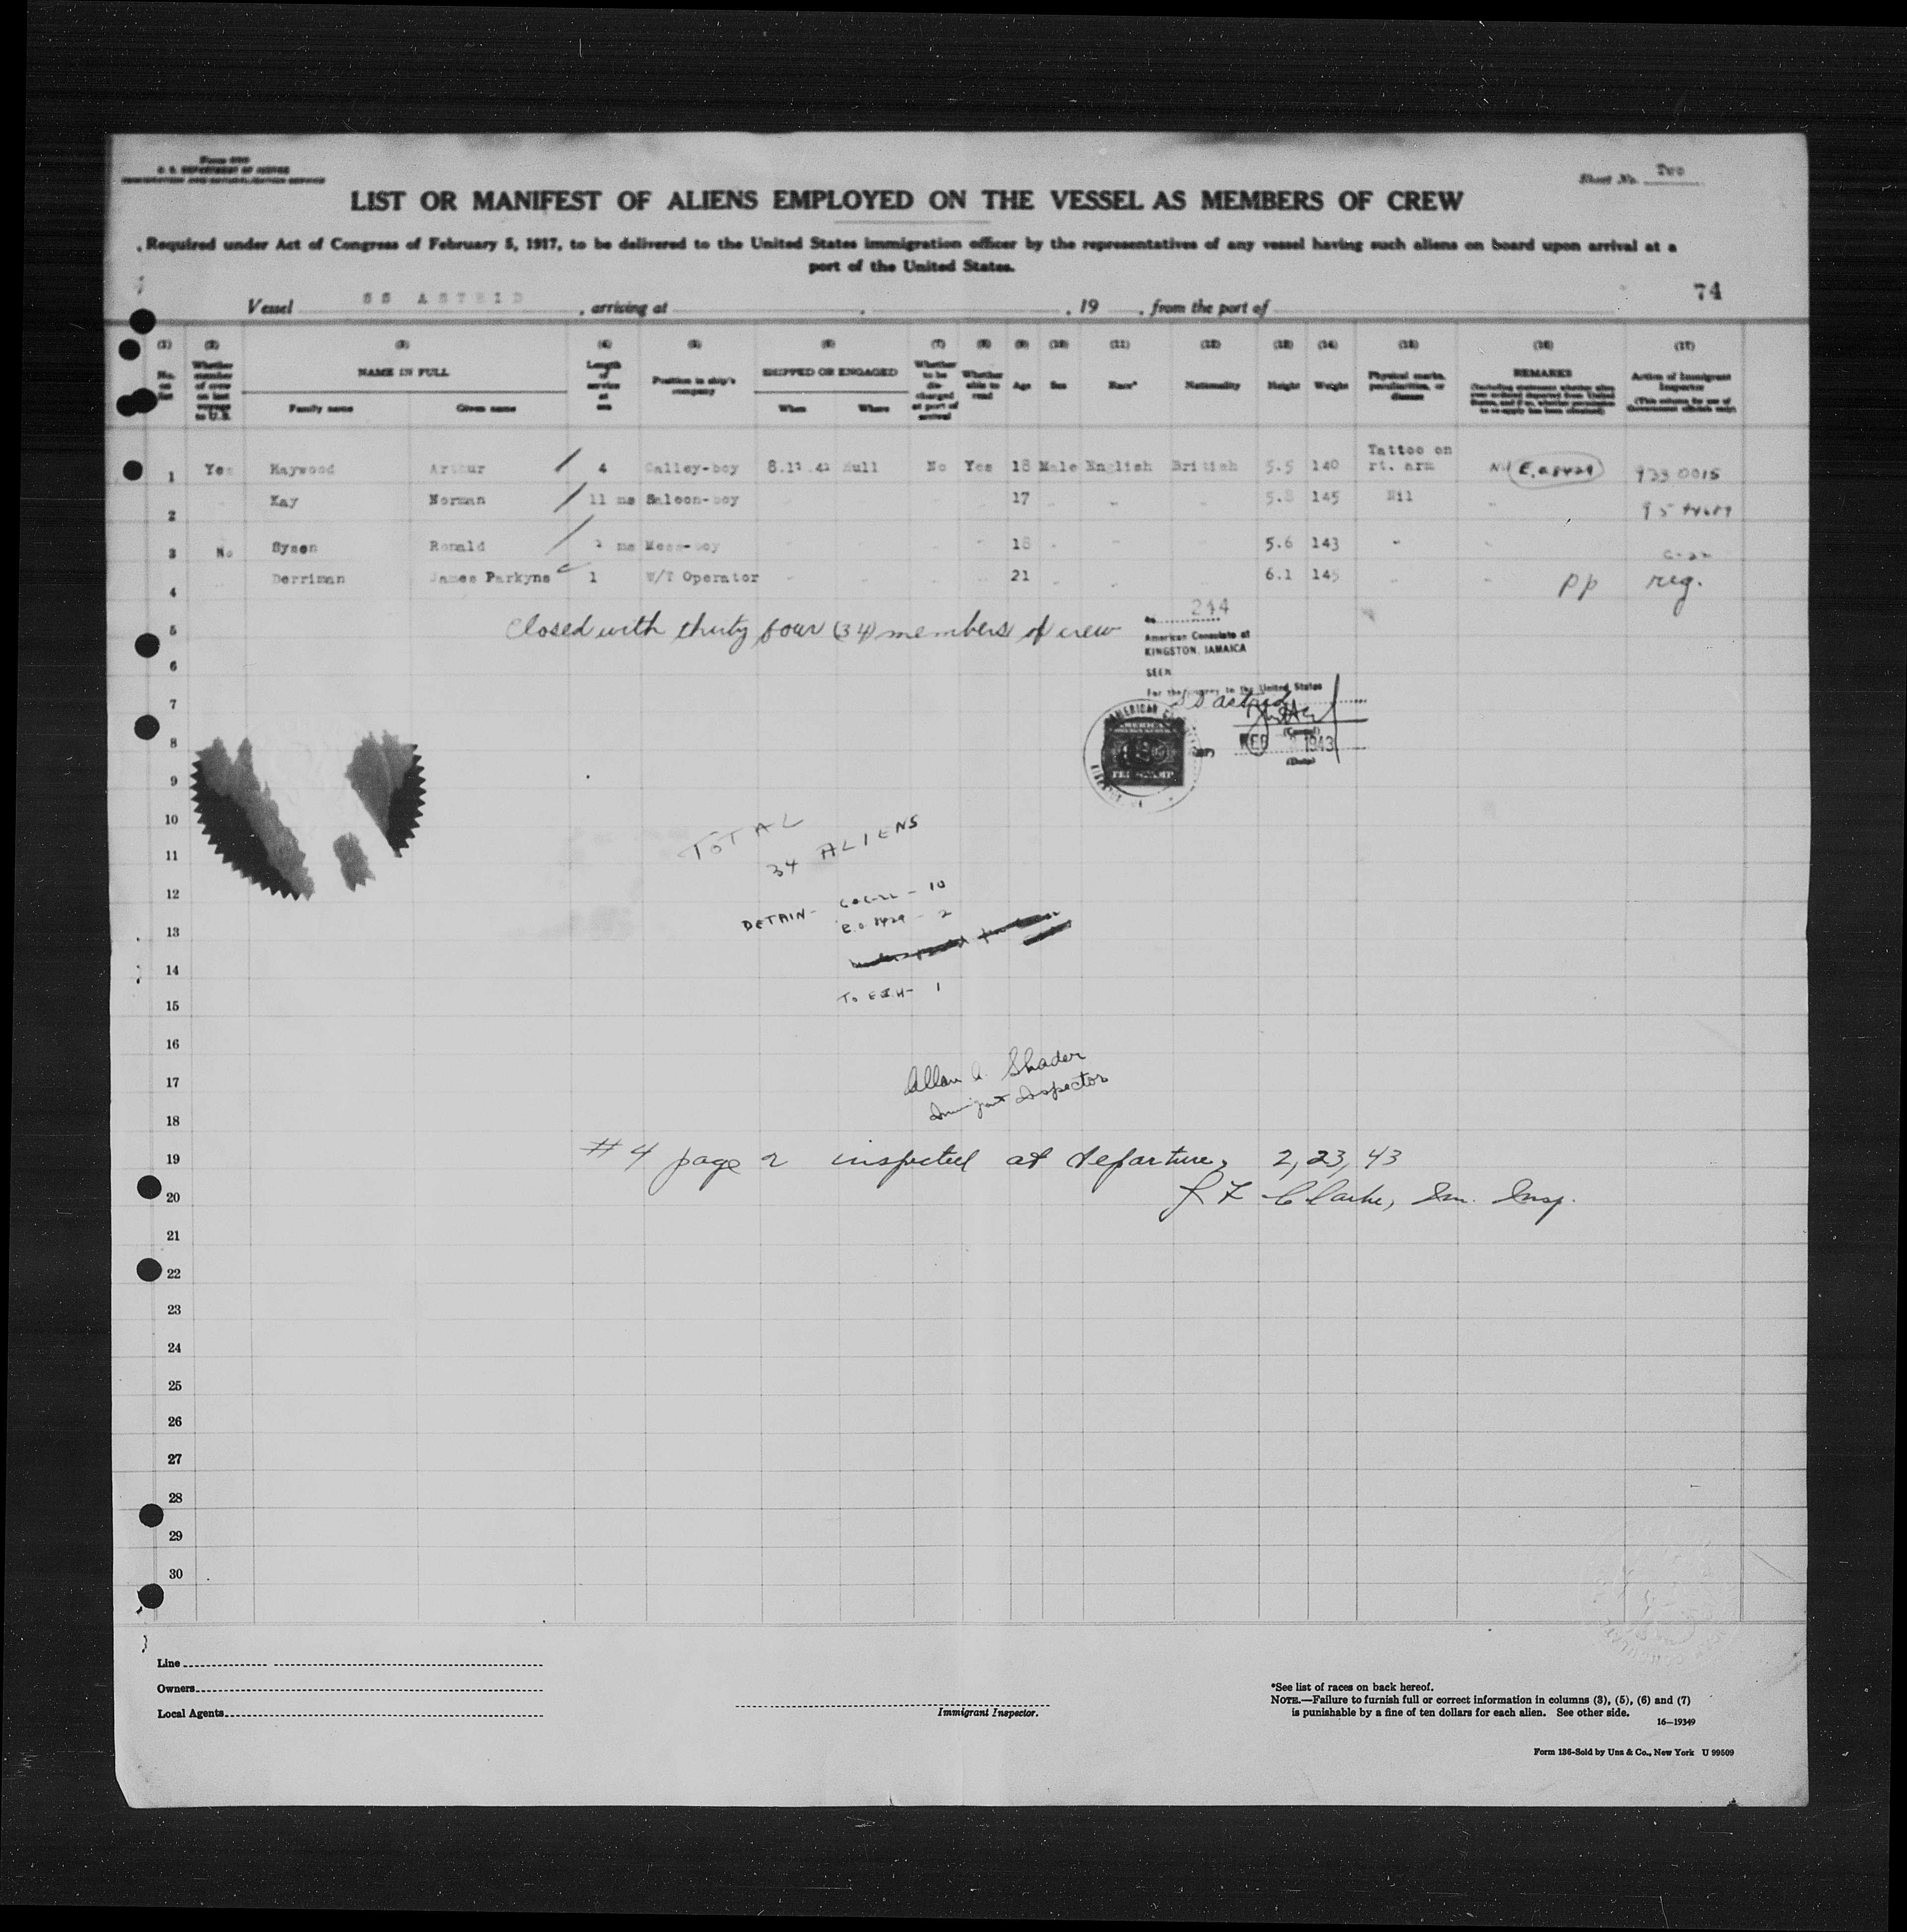 U. S. DEPARTMENT OF JUSTICE
IMMIGRATION AND NATURALIZATION SERVICE
Sheet No. Two
LIST OR MANIFEST OF ALIENS EMPLOYED ON THE VESSEL AS MEMBERS OF CREW
Required under Act of Congress of February 5, 1917, to be delivered to the United States immigration officer by the representatives of any vessel having such aliens on board upon arrival at a
port of the United States.
74
Vessel SS ASTRID, arriving at , 19 , from the port of
(1) (2) (3) (4) (5) (6) (7) (8) (9) (10) (11) (12) (13) (14) (15) (16) (17)
No. on list
Whether member of crew on last voyage to U.S.
NAME IN FULL
Family name Given name
Length of service at sea
Position in ship's company
SHIPPED OR ENGAGED
When Where
Whether to be discharged at port of arrival
Whether able to read
Age Sex Race* Nationality Height Weight
Physical marks, peculiarities, or disease
REMARKS
(Including statement whether alien ever ordered deported from United States, and if so, whether permission to re-apply has been obtained)
Action of Immigrant Inspector
(This column for use of Government officials only)
1 Yes Haywood Arthur 4 Galley-boy Hull No Yes 18 Male English British 5.5 140 Tattoo on rt. arm Nil
2 Kay Norman 11 ms Saloon-boy 17 - - - 5.8 145 Nil -
3 No Syson Ronald ms Mess-boy 18 - 5.6 143 - -
4 Derriman James Parkyns 1 W/T Operator 21 6.1 145 pp reg.
Closed with thirty four (34) members of crew
No. 244
American Consulate at
KINGSTON, JAMAICA
SEEN
For the journey to the United States
SS Astrid
(Consul)
FEB 1943
(Date)
AMERICAN
FEE STAMP
5
6
7
8
9
10
11
12
13
14
15
16
17
18
19
20
21
22
23
24
25
26
27
28
29
30
TOTAL
34 ALIENS
DETAIN - - 10
- 2
To - 1
Allan A. Shader
Immigrant Inspector
#4 page 2 inspected at departure, 2,23,43
Clarke, Im. Insp.
Line
Owners
Local Agents
Immigrant Inspector.
*See list of races on back hereof.
NOTE.—Failure to furnish full or correct information in columns (3), (5), (6) and (7)
is punishable by a fine of ten dollars for each alien. See other side.
16—19349
Form 136-Sold by Unz & Co., New York U 99509